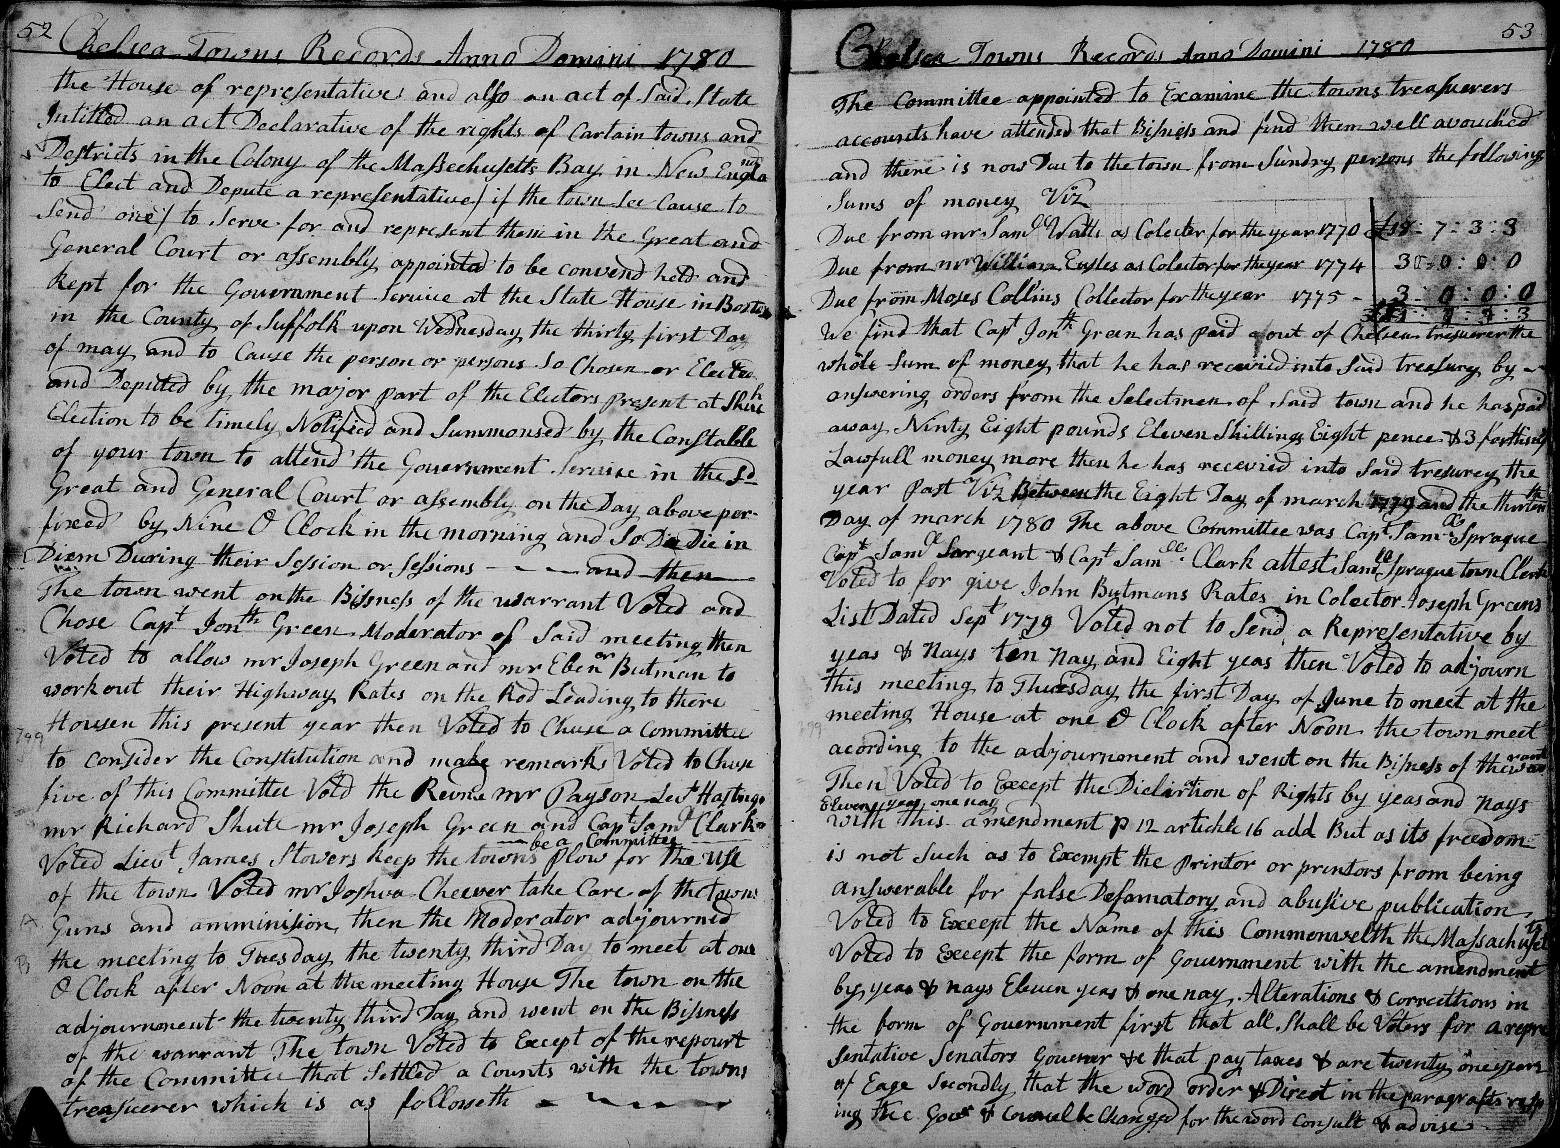 52 Chelsea Towns Records Anno Domini 1780
the House of representatives and also an act of Said State
Intitled an act Declarative of the rights of Cartain towns and
Destricts in the Colony of the Massechusetts Bay in New Engla nd
to Elect and Depute a representative / if the town See Cause to
Send one / to Serve for and represent them in the Great and
General Court or assembly appointed to be convend held and
Kept for the Government Service at the State House in Boston
in the County of Suffolk upon Wednesday the thirty first Day
of may and to Cause the person or persons So Chosen or Elected
and Deputed by the major part of the Electors present at Such
Election to be timely Notified and Summonsed by the Constable
of your town to attend the Government Servise in the Sd
Great and General Court or assembly on the Day above per-
fixed by Nine O Clock in the morning and So De Die in
Diem During their Session or Sessions - - - and then
The town went on the Bisness of the warrant Voted and
Chose Capt Jonth Green Moderator of Said meeting then
Voted to allow mr Joseph Green and mr Ebenr Butman to
work out their Highway Rates on the Rod Leading to there
Housen this present year then Voted to Chuse a Committee
to consider the Constitution and make remarks Voted to Chuse
five of this Committee Votd the Revnd mr Payson Let Hastings
mr Richard Shute mr Joseph Green and Capt Saml Clark
be a Committee
Voted Lieut James Stowers keep the towns plow for the use
of the town Voted mr Joshua Cheever take Care of the towns
Guns and amminision, then the Moderator adjourned
the meeting to Tuesday the twenty third Day to meet at one
O Clock after Noon at the meeting House The town on the
adjournment the twenty third Day and went on the Bisness
of the warrant The town Voted to Except of the repourt
of the Committee that Settled a Counts with the towns
treasuerer which is as followeth
Chelsea Towns Records Anno Domini 1780 53
The Committee appointed to Examine the towns treasuerers
accounts have attended that Bisness and find them well avouched
and there is now Due to the town from Sundry persons the following
Sums of money Viz
Due from mr Saml Watts as Colecter for the year 1770 £18 - 7 : 3 : 3
Due from mr William Eustes as Colector for the year 1774 30 : 0 : 0 : 0
Due from Moses Collins Collector for the year 1775 - 3 : 0 : 0 : 0
We find that Capt Jonth Green has paid out of Chelsea tresuerer the
whole Sum of money that he has received into Said treasury by
answering orders from the Selectmen of Said town and he has paid
away Ninty Eight pounds Eleven Shillings Eight pence & 3 farthings
Lawfull money more then he has received into Said tresurey the
year past Viz Between the Eight Day of march 1779 and the thirteen th
Day of march 1780 The above Committee was Capt Saml Sprague
Capt Saml Sargeant & Capt Samll Clark attest Samll Sprague town Clerk
Voted to for give John Butmans Rates in Colector Joseph Greens
List Dated Sept 1779 Voted not to Send a Representative by
yeas & Nays ten Nay and Eight yeas then Voted to adjourn
this meeting to Thursday the first Day of June to meet at the
meeting House at one O Clock after Noon the town meet
acording to the adjournment and went on the Bisness of the warrant
Then Voted to Except the Diclaration of Rights by yeas and Nays
Eleven yeas one nay
with this amendment p 12 artickle 16 add But as its freedom
is not Such as to Exempt the Printor or printors from being
answerable for false Defamatory and abusive publication,
Voted to Except the Name of this Commonwelth the Massachusetts
Voted to Except the form of Government with the amendment
by yeas & nays Eleven yeas & one nay. Alterations & correcttions in
the form of Government first that all Shall be Voters for a repre
sentative Senators Gouener &c that pay taxes & are twenty one years
of Eage Secondly that the word order & Direct in the paragrafts resp
ing the Govr & Councul be Changed for the word consult & advise